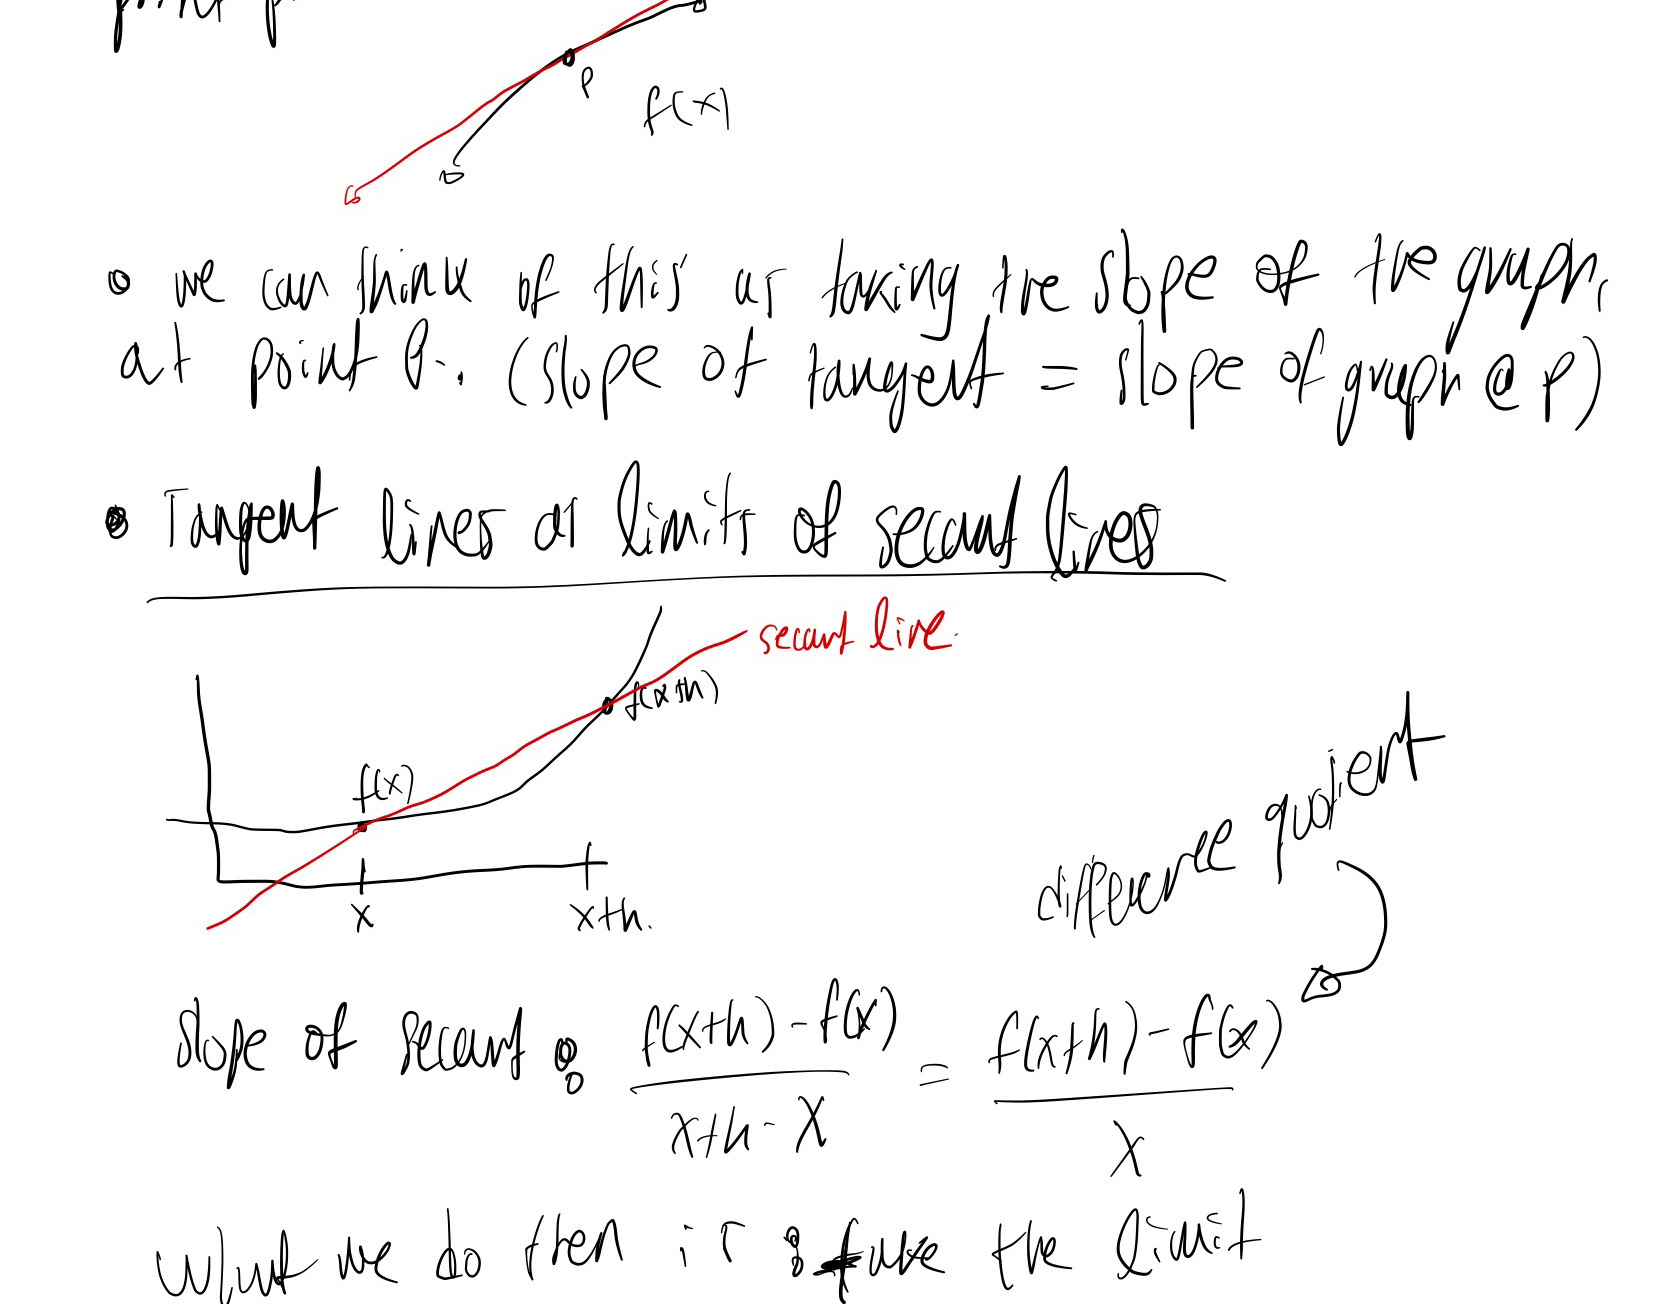 point p
p
f(x)
we can think of this as taking the slope of the graph,
at point P. (slope of tangent = slope of graph @ p)
Tangent lines as limits of secant lines
secant line.
f(x+h)
f(x)
x
x+h.
difference quotient
slope of secant: f(x+h)-f(x) / x+h-x = f(x+h)-f(x) / x
what we do then is: take the limit